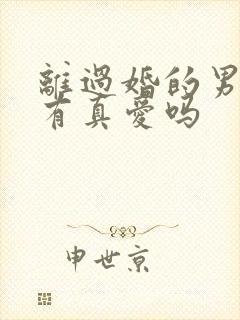 離過婚的男
有真愛嗎
申世京